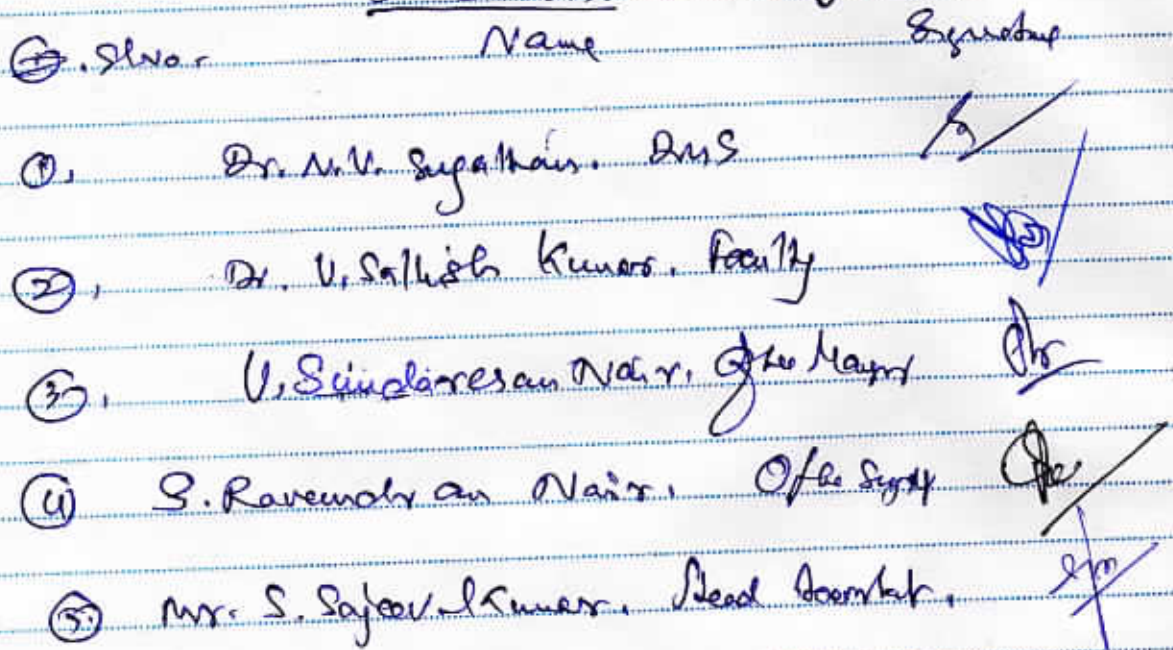 Sl No. Name Signature
1. Dr. N.V. Sugathan. DMS
2. Dr. V. Sathish Kumar. Faculty
3. V. Sundaresan Nair. Office Manager
4 S. Raveendran Nair. Office Supt
5. Mr. S. Sajeev Kumar. Head Accountant.